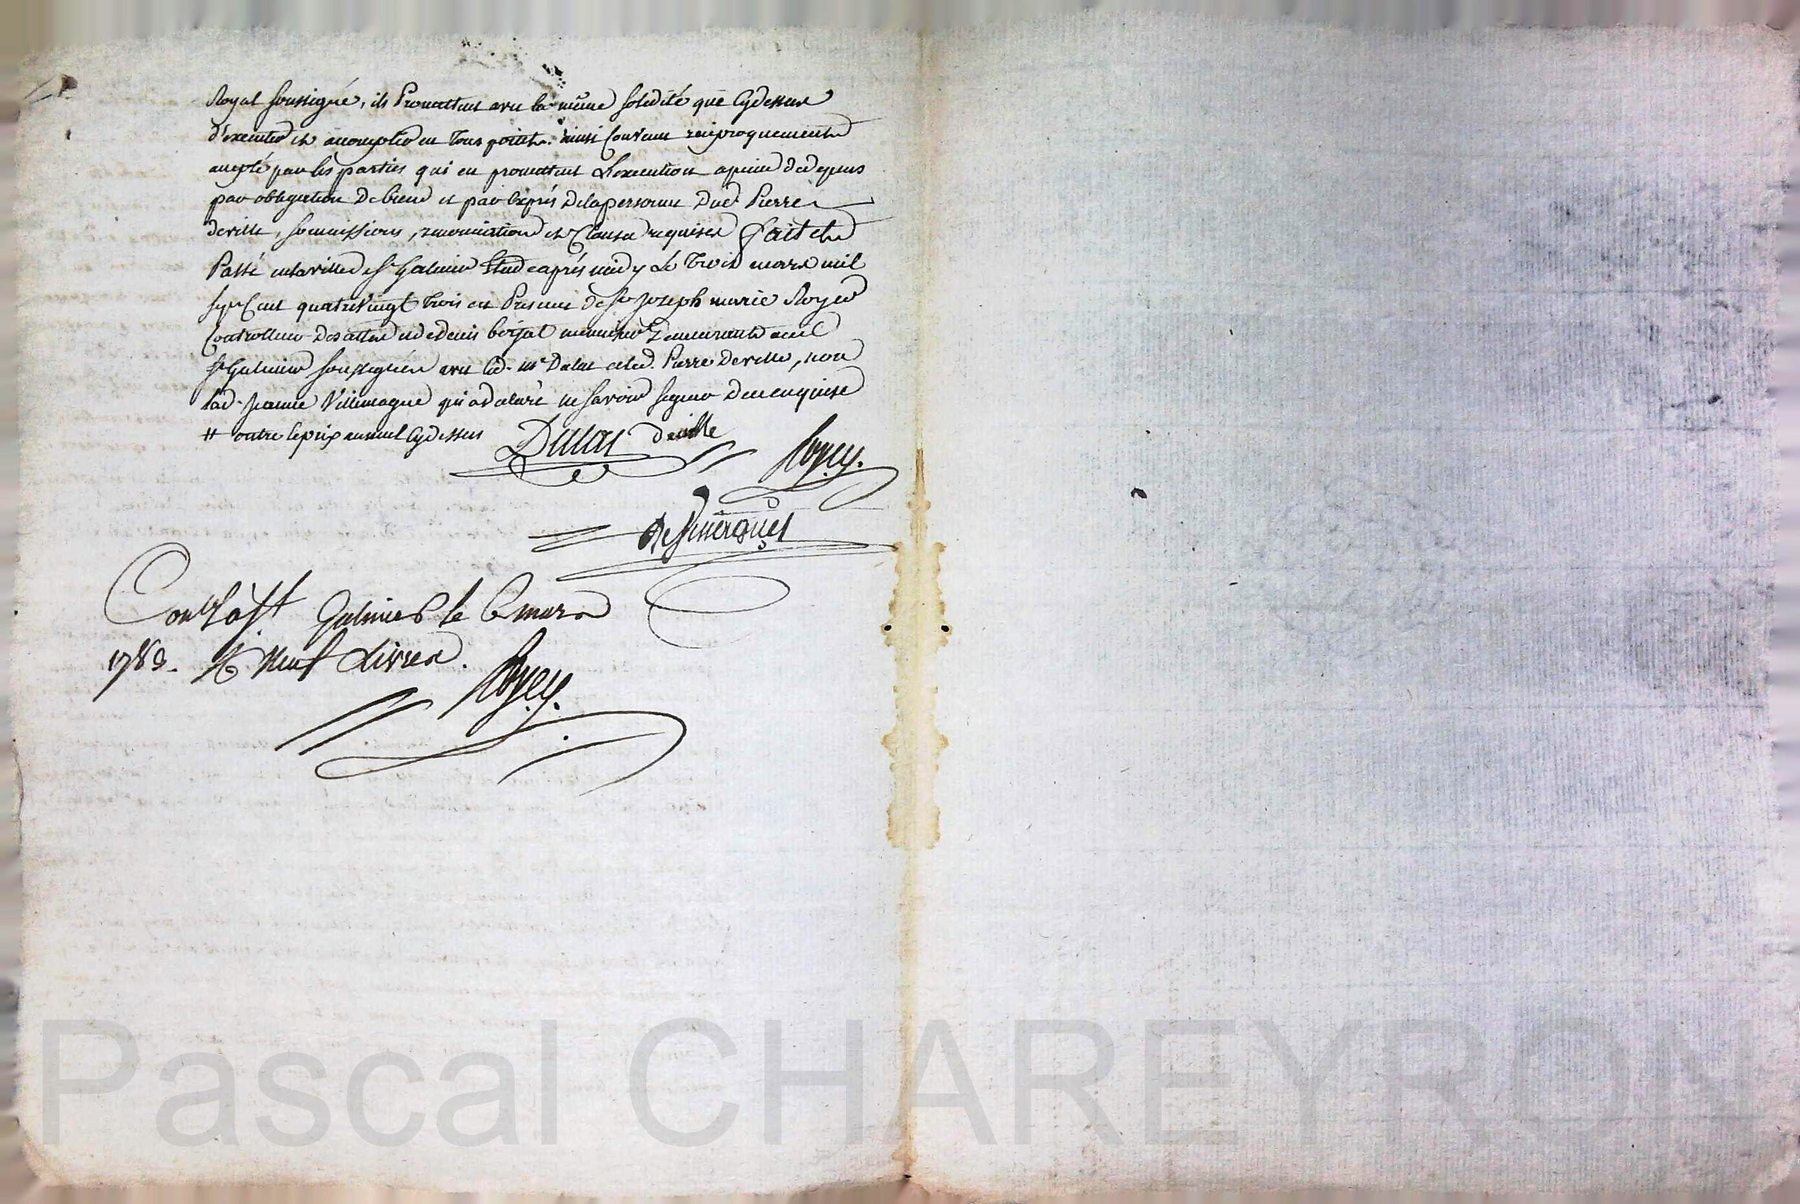 Royal soussigné, ils Promettent avec la même solidité que Cydessus
d'executer et accomplir en tous points. ainsi Convenu reciproquement
accepté par les parties qui en promettent L'execution a peine de depens
par obligation De biens et par Exprés De la personne Dud. Pierre
deville, soumissions, renonciations et Clauses requises Fait et
Passé en la ville de St Galmier Etude aprés midy Le Trois mars mil
sept Cent quatre Vingt trois en Presence de Sr Joseph marie Royer
Controlleur Des actes et de denis menuisier Demeurants aud
St Galmier soussignés avec led. Me Dalas et led. Pierre Deville, non
lad. Jeanne Villemagne qui a declaré ne savoir signer De ce enquise
# outre le prix annuel Cydessus
Dalas deville
Royer.
Contr. à St Galmier le 6 mars
1783. R. Neuf Livres.
Royer.
Pascal CHAREYRON